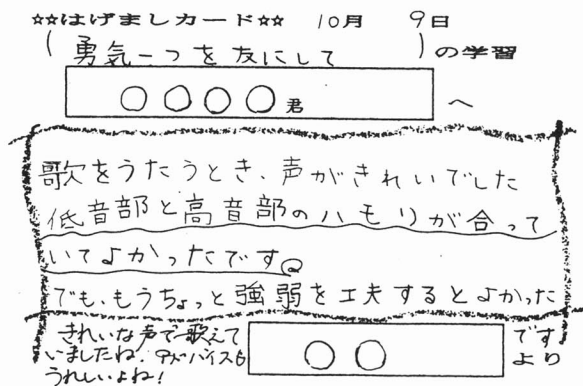 ☆☆はげましカード☆☆ 10月 9日
(勇気一つを友にして)の学習
○○○○君 へ
歌をうたうとき、声がきれいでした
低音部と高音部のハモりが合って
いてよかったです。
でも、もうちょっと強弱を工夫するとよかった
です
きれいな声で歌えて
いましたね。アドバイスも
うれしいよね!
○○ より